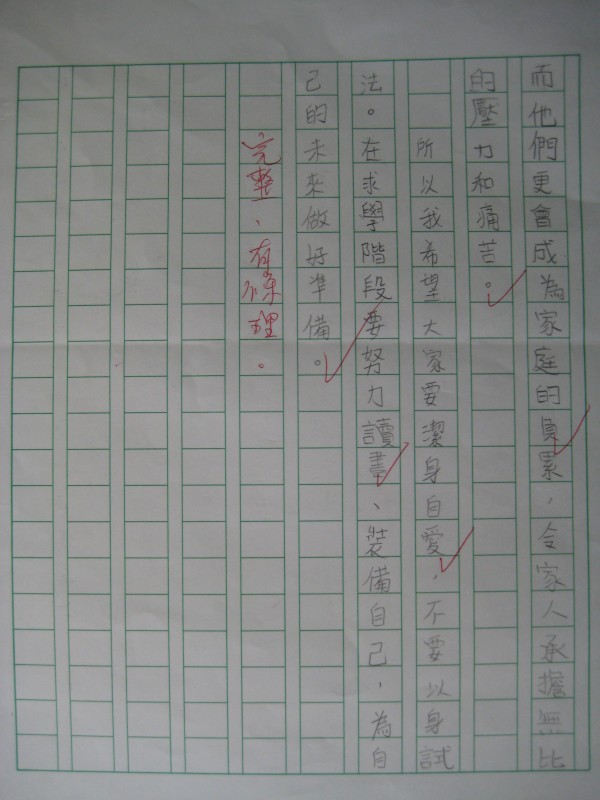 而他們更會成為家庭的負累，令家人承擔無比
的壓力和痛苦。
所以我希望大家要潔身自愛，不要以身試
法。在求學階段要努力讀書、裝備自己，為自
己的未來做好準備。
完整、有條理。